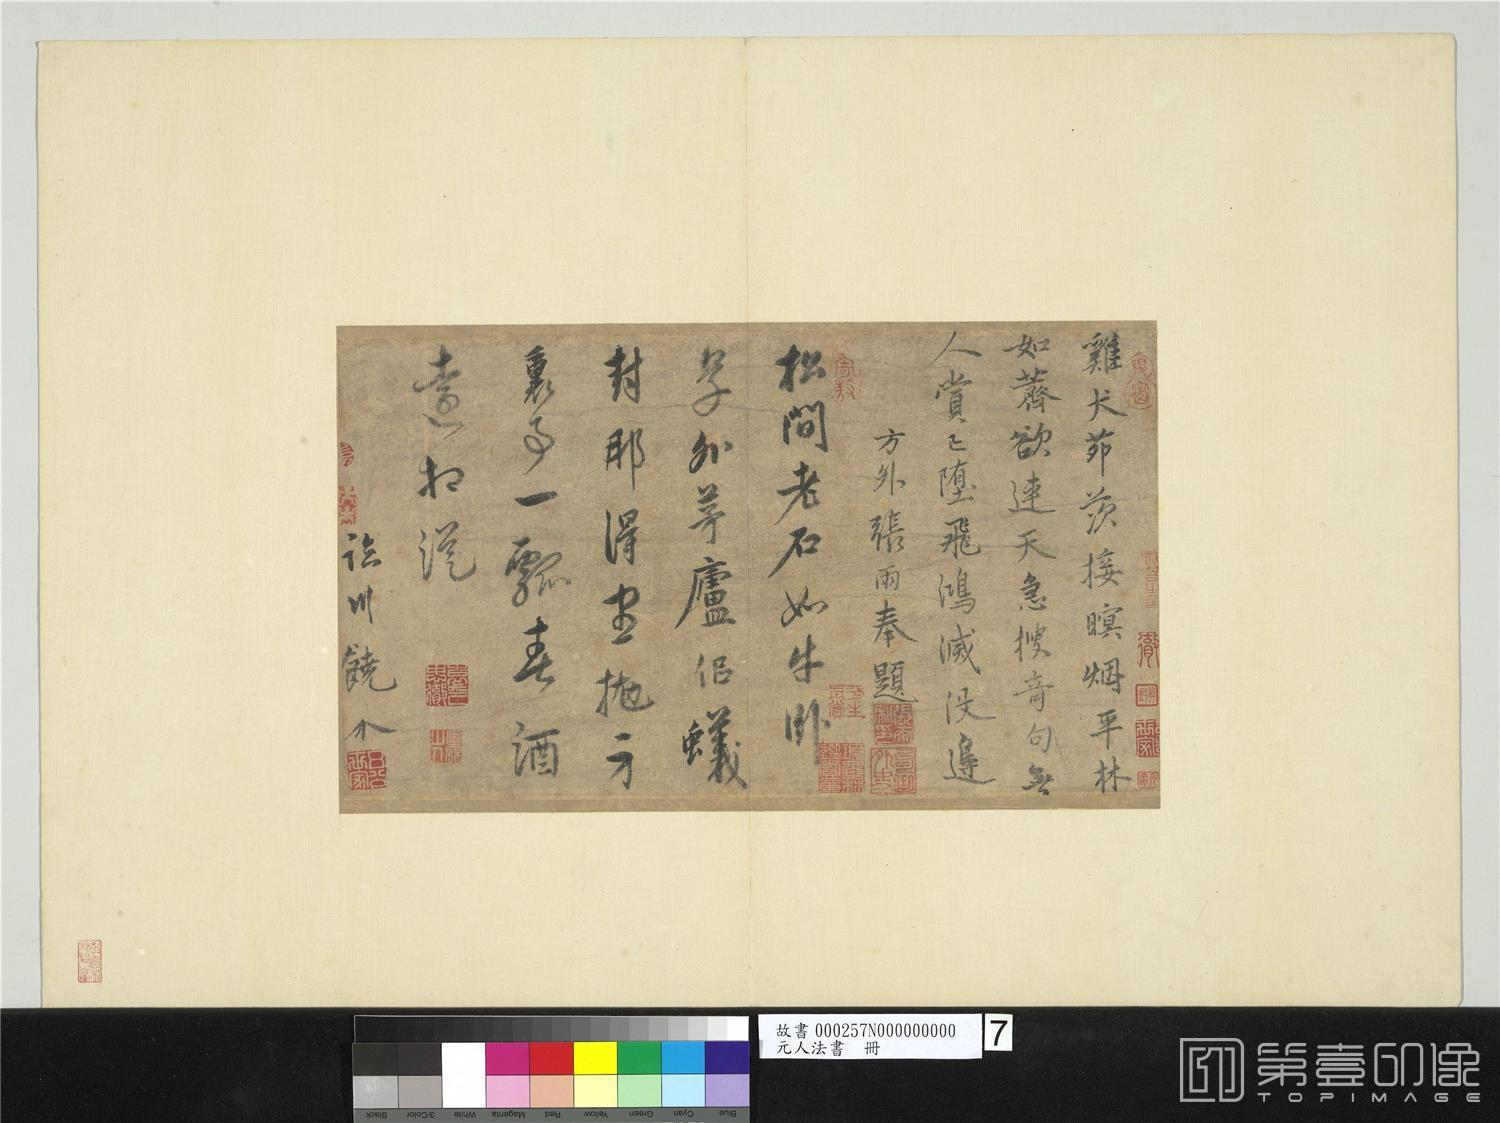 雞犬茆茨接暝烟平林
如薺欲連天急搜奇句無
人賞已墮飛鴻滅沒邊
方外張雨奉題
松間老石如牛卧
草外茅廬侶蟻
封那得盡抛方
裏事一瓢春酒
遠相從
臨川饒介
故書 000257N000000000
元人法書 冊
7
Black
3/Color
White
Magenta
Red
Yellow
Green
Cyan
Blue
第壹印像
TOPIMAGE